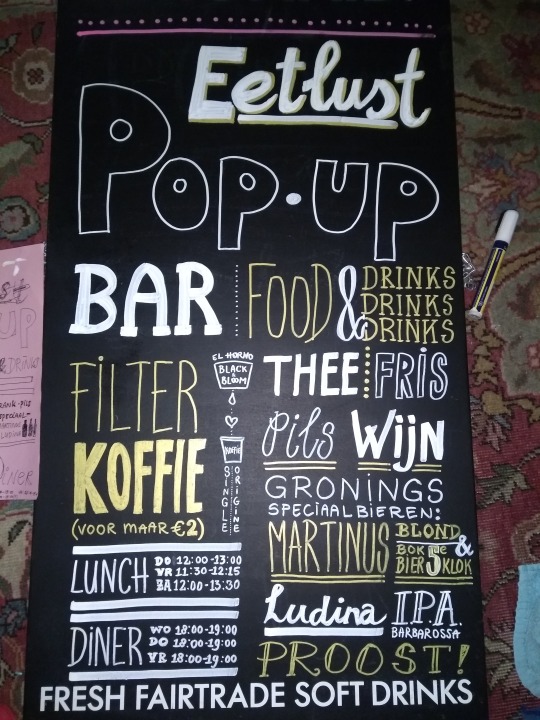 Eetlust
POP·UP
BAR
FOOD & DRINKS
DRINKS
DRINKS
FILTER
KOFFIE
(VOOR MAAR €2)
EL HORNO
BLACK
&
BLOOM
KOFFIE
SINGLE
ORIGINE
THEE FRIS
Pils Wijn
GRONINGS
SPECIAALBIEREN:
MARTINUS BLOND &
BOK
BIER 5DE KLOK
LUNCH
DO 12:00-13:00
VR 11:30-12:15
ZA 12:00-13:30
DINER
WO 18:00-19:00
DO 18:00-19:00
VR 18:00-19:00
Ludina I.P.A.
BARBAROSSA
PROOST!
FRESH FAIRTRADE SOFT DRINKS